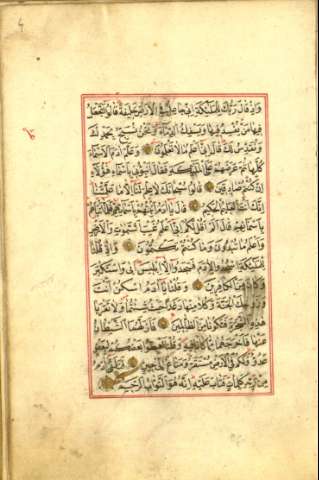 وَإِذْ قَالَ رَبُّكَ لِلْمَلٰئِكَةِ اِنِّي جَاعِلٌ فِي الْاَرْضِ خَلِيفَةً قَالُوا اَتَجْعَلُ
فِيهَا مَنْ يُفْسِدُ فِيهَا وَيَسْفِكُ الدِّمَاءَ وَنَحْنُ نُسَبِّحُ بِحَمْدِكَ
وَنُقَدِّسُ لَكَ قَالَ اِنِّي اَعْلَمُ مَا لَا تَعْلَمُونَ وَعَلَّمَ اٰدَمَ الْاَسْمَاءَ
كُلَّهَا ثُمَّ عَرَضَهُمْ عَلَى الْمَلٰئِكَةِ فَقَالَ اَنْبِئُونِي بِاَسْمَاءِ هٰؤُلَاءِ
اِنْ كُنْتُمْ صَادِقِينَ قَالُوا سُبْحَانَكَ لَا عِلْمَ لَنَا اِلَّا مَا عَلَّمْتَنَا
اِنَّكَ اَنْتَ الْعَلِيمُ الْحَكِيمُ قَالَ يَا اٰدَمُ اَنْبِئْهُمْ بِاَسْمَائِهِمْ فَلَمَّا اَنْبَاَهُمْ
بِاَسْمَائِهِمْ قَالَ اَلَمْ اَقُلْ لَكُمْ اِنِّي اَعْلَمُ غَيْبَ السَّمٰوَاتِ وَالْاَرْضِ
وَاَعْلَمُ مَا تُبْدُونَ وَمَا كُنْتُمْ تَكْتُمُونَ وَاِذْ قُلْنَا
لِلْمَلٰئِكَةِ اسْجُدُوا لِاٰدَمَ فَسَجَدُوا اِلَّا اِبْلِيسَ اَبٰى وَاسْتَكْبَرَ
وَكَانَ مِنَ الْكَافِرِينَ وَقُلْنَا يَا اٰدَمُ اسْكُنْ اَنْتَ
وَزَوْجُكَ الْجَنَّةَ وَكُلَا مِنْهَا رَغَدًا حَيْثُ شِئْتُمَا وَلَا تَقْرَبَا
هٰذِهِ الشَّجَرَةَ فَتَكُونَا مِنَ الظَّالِمِينَ فَاَزَلَّهُمَا الشَّيْطَانُ
عَنْهَا فَاَخْرَجَهُمَا مِمَّا كَانَا فِيهِ وَقُلْنَا اهْبِطُوا بَعْضُكُمْ لِبَعْضٍ
عَدُوٌّ وَلَكُمْ فِي الْاَرْضِ مُسْتَقَرٌّ وَمَتَاعٌ اِلٰى حِينٍ فَتَلَقّٰى اٰدَمُ
مِنْ رَبِّهِ كَلِمَاتٍ فَتَابَ عَلَيْهِ اِنَّهُ هُوَ التَّوَّابُ الرَّحِيمُ